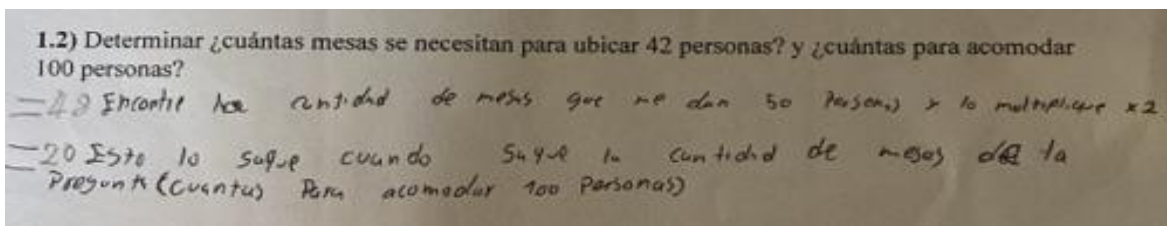 1.2) Determinar ¿cuántas mesas se necesitan para ubicar 42 personas? y ¿cuántas para acomodar
100 personas?
=48 Encontre la cantidad de mesas que me dan 50 Personas y lo multiplique x2
=20 Esto lo saque cuando saque la cantidad de mesas de la
Pregunta (Cuantas Para acomodar 100 Personas)